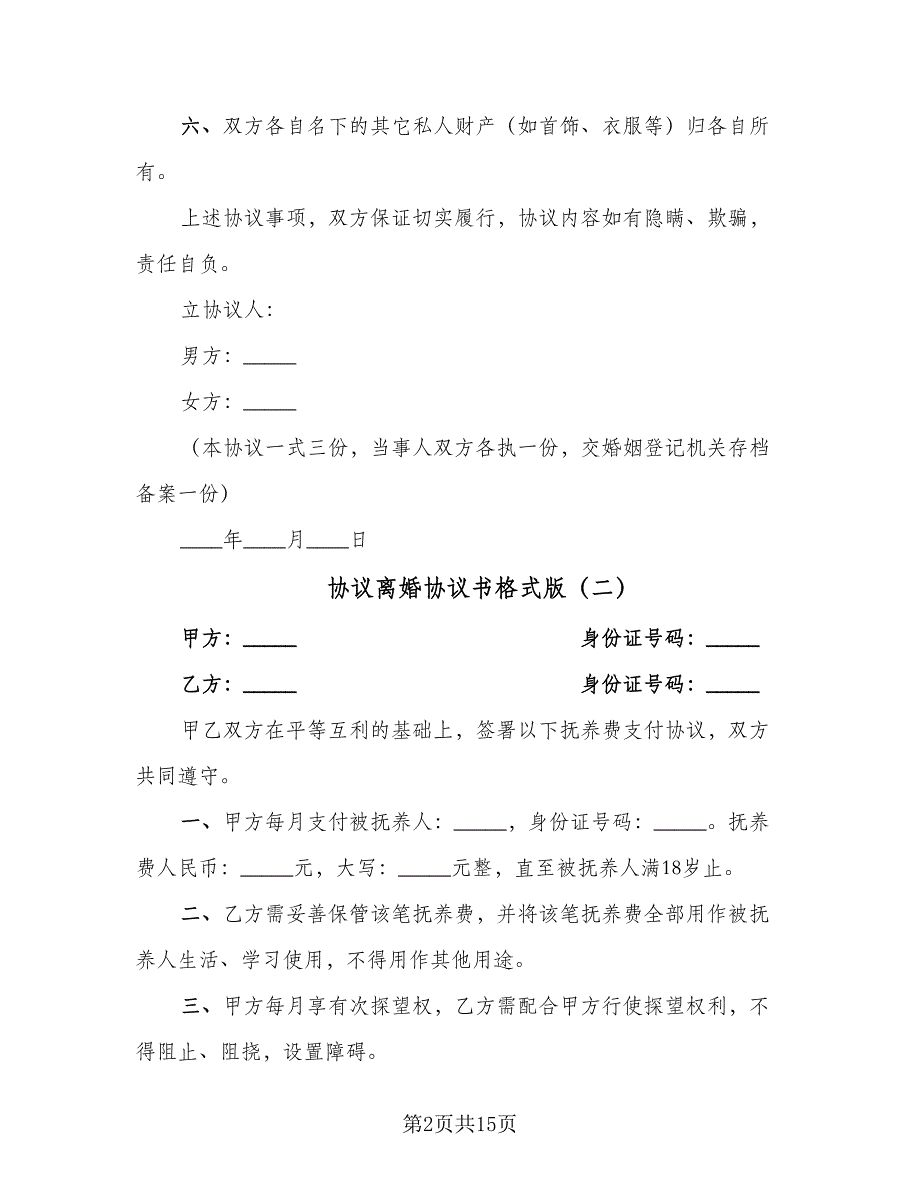 六、双方各自名下的其它私人财产（如首饰、衣服等）归各自所
有。
上述协议事项，双方保证切实履行，协议内容如有隐瞒、欺骗，
责任自负。
立协议人：
男方：_____
女方：_____
（本协议一式三份，当事人双方各执一份，交婚姻登记机关存档
备案一份）
____年____月____日
协议离婚协议书格式版（二）
甲方：_____ 身份证号码：_____
乙方：_____ 身份证号码：_____
甲乙双方在平等互利的基础上，签署以下抚养费支付协议，双方
共同遵守。
一、甲方每月支付被抚养人：_____，身份证号码：_____。抚养
费人民币：_____元，大写：_____元整，直至被抚养人满18岁止。
二、乙方需妥善保管该笔抚养费，并将该笔抚养费全部用作被抚
养人生活、学习使用，不得用作其他用途。
三、甲方每月享有次探望权，乙方需配合甲方行使探望权利，不
得阻止、阻挠，设置障碍。
第2页共15页